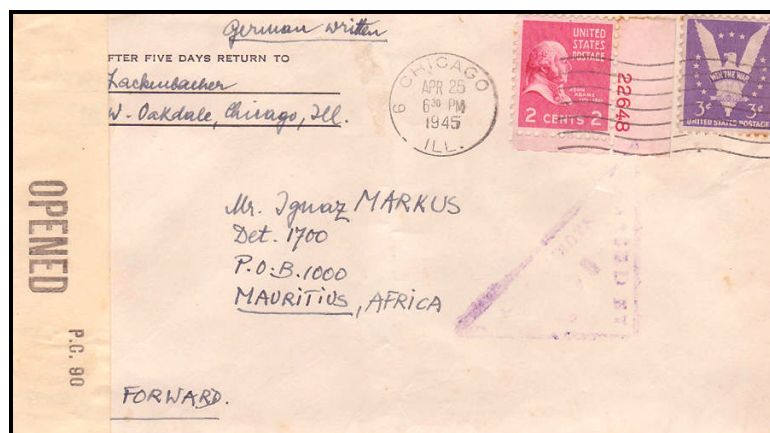 German written
FTER FIVE DAYS RETURN TO
Lackenbacher
W. Oakdale, Chicago, Ill.
CHICAGO
APR 25
6 30 PM
1945
ILL.
6
UNITED
STATES
POSTAGE
JOHN
ADAMS
2 CENTS 2
22648
WIN THE WAR
3¢ 3¢
UNITED STATES POSTAGE
OPENED
P.C. 90
Mr. Ignaz MARKUS
Det. 1700
P.O.B. 1000
MAURITIUS, AFRICA
FORWARD.